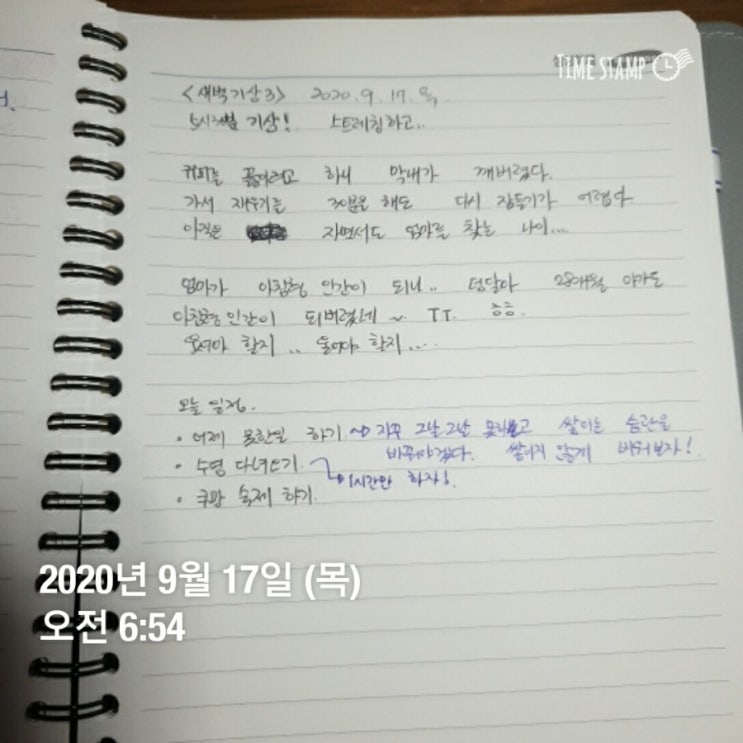 TIME STAMP
<새벽기상3> 2020. 9. 17. 목.
5시 기상! 스트레칭하고..
커피를 끓이려고 하니 막내가 깨버렸다.
가서 재우기를 30분을 해도 다시 잠들기가 어렵다
아직은 자면서도 엄마를 찾는 나이...
엄마가 아침형 인간이 되니.. 덩달아 28개월 아가도
아침형인간이 되버렸네 ~ TT. 흐흐.
웃어야 할지 .. 울어야 할지....
오늘 일정.
• 어제 못한일 하기. → 자꾸 그날그날 못하고 쌓이는 습관을
바꿔야겠다. 쌓이지 않게 바꿔보자!
• 수영 다녀오기. 1시간만 하자!
• 쿠팡 숙제 하기.
2020년 9월 17일 (목)
오전 6:54